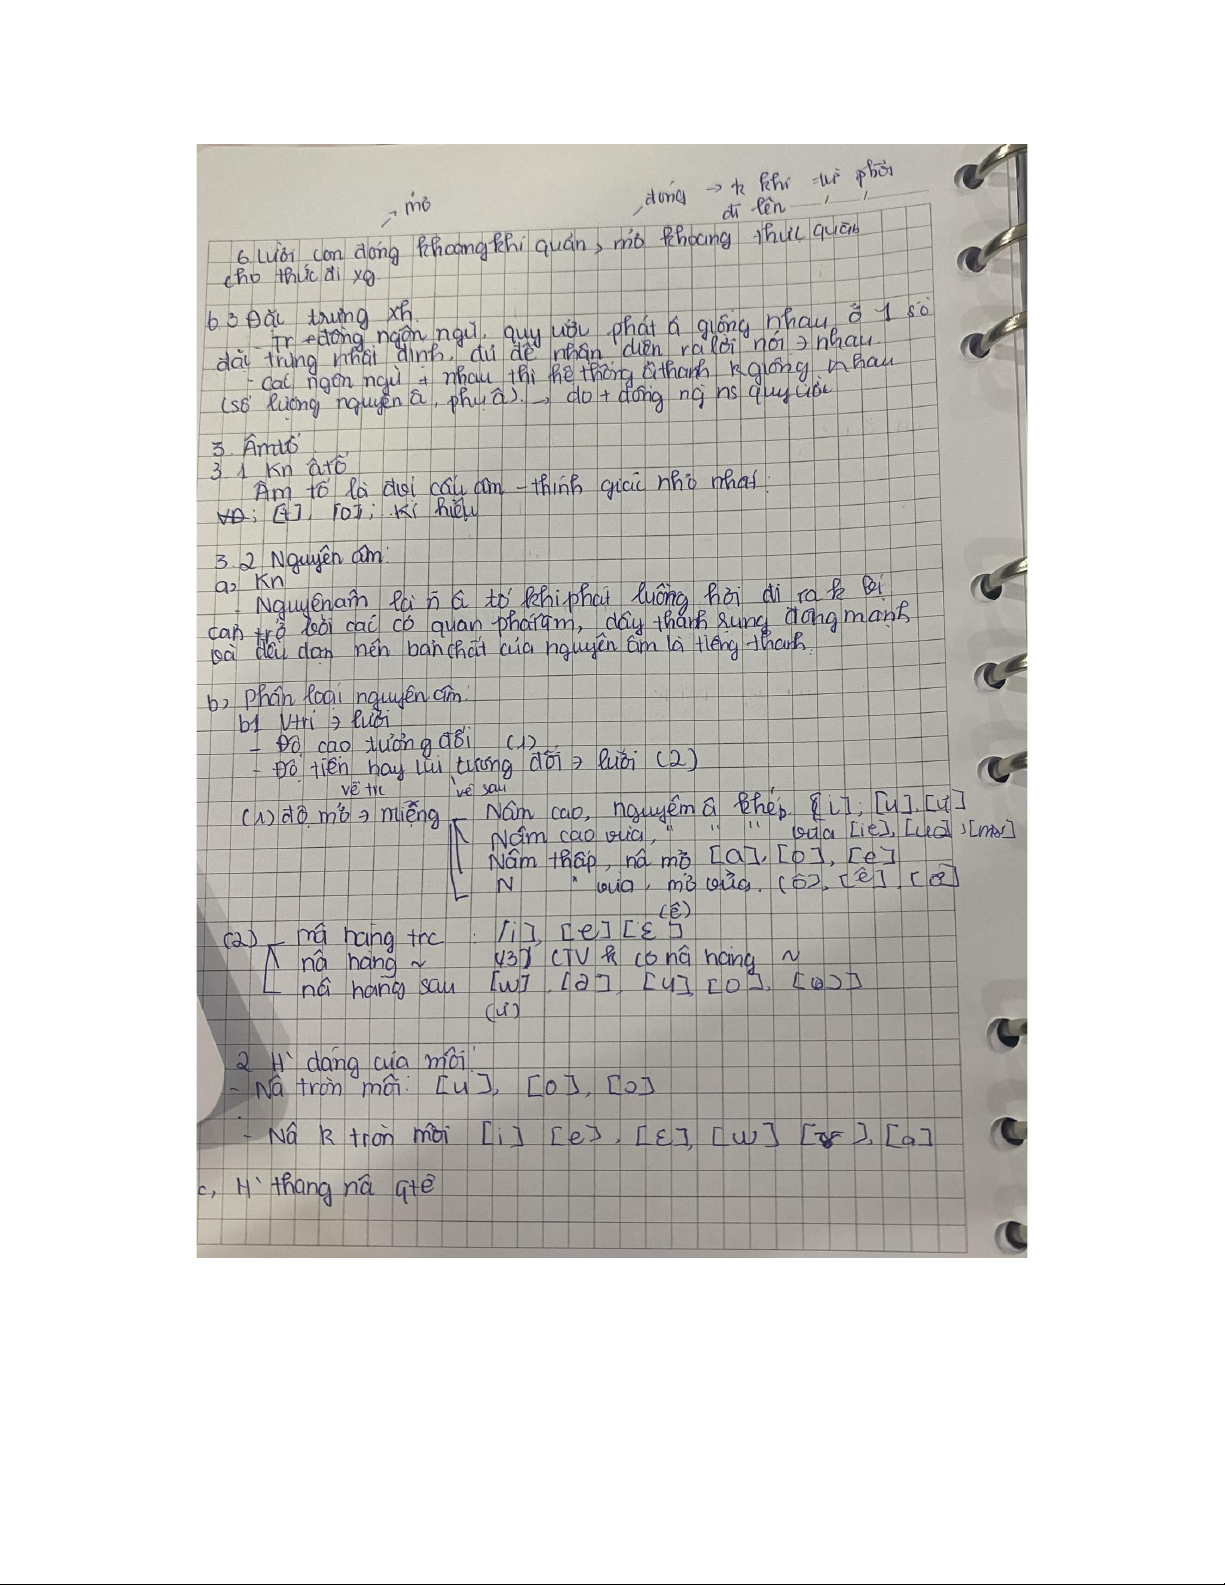 mở
đóng → k khí từ phổi
đi lên
6 Lưỡi con đóng khoang khí quản, mở khoang thực quản
cho thức ăi xg.
b3 Đặc trưng xh.
- Tr cđồng ngôn ngữ, quy ước phát â giống nhau ở 1 số
đặc trưng nhất định, đủ để nhận diện ra lời nói > nhau
- Các ngôn ngữ ≠ nhau thì hệ thống âthanh k giống nhau
(số lượng nguyên â, phụ â). → do ≠ đồng ng ns quy ước
3. Âm tố
3.1 Kn âtố
Âm tố là đvị cấu âm - thính giác nhỏ nhất.
VD: [t], [o]; kí hiệu
3.2 Nguyên âm:
a, Kn
- Nguyên âm là n~ â tố khi phát luồng hơi đi ra k bị
cản trở bởi các cơ quan phát âm, dây thanh rung động mạnh
và đều đặn nên bản chất của nguyên âm là tiếng thanh.
b, Phân loại nguyên âm:
b1 Vtrí > lưỡi
- Độ cao tương đối (1)
- Độ tiến hay lùi tương đối > lưỡi (2)
về trc về sau
(1) độ mở > miệng - Nâm cao, nguyên â khép [i], [u], [ư]
Nâm cao vừa, " " " vừa [iê], [uô], [ươ]
Nâm thấp, nâ mở [a], [o], [e]
N " vừa, mở vừa. [ô], [ê], [ơ]
(ê)
(2) - nâ hàng trc : [i], [e] [ɛ]
nâ hàng ~ [ɜ] (TV k có nâ hàng ~
nâ hàng sau [ɯ], [ə], [u], [o], [ɔ]
(ư)
2 H` dáng của môi:
- Nâ tròn môi: [u], [o], [ɔ]
- Nâ k tròn môi [i] [e], [ɛ], [ɯ] [ɤ], [a]
c, H` thang nâ qtế